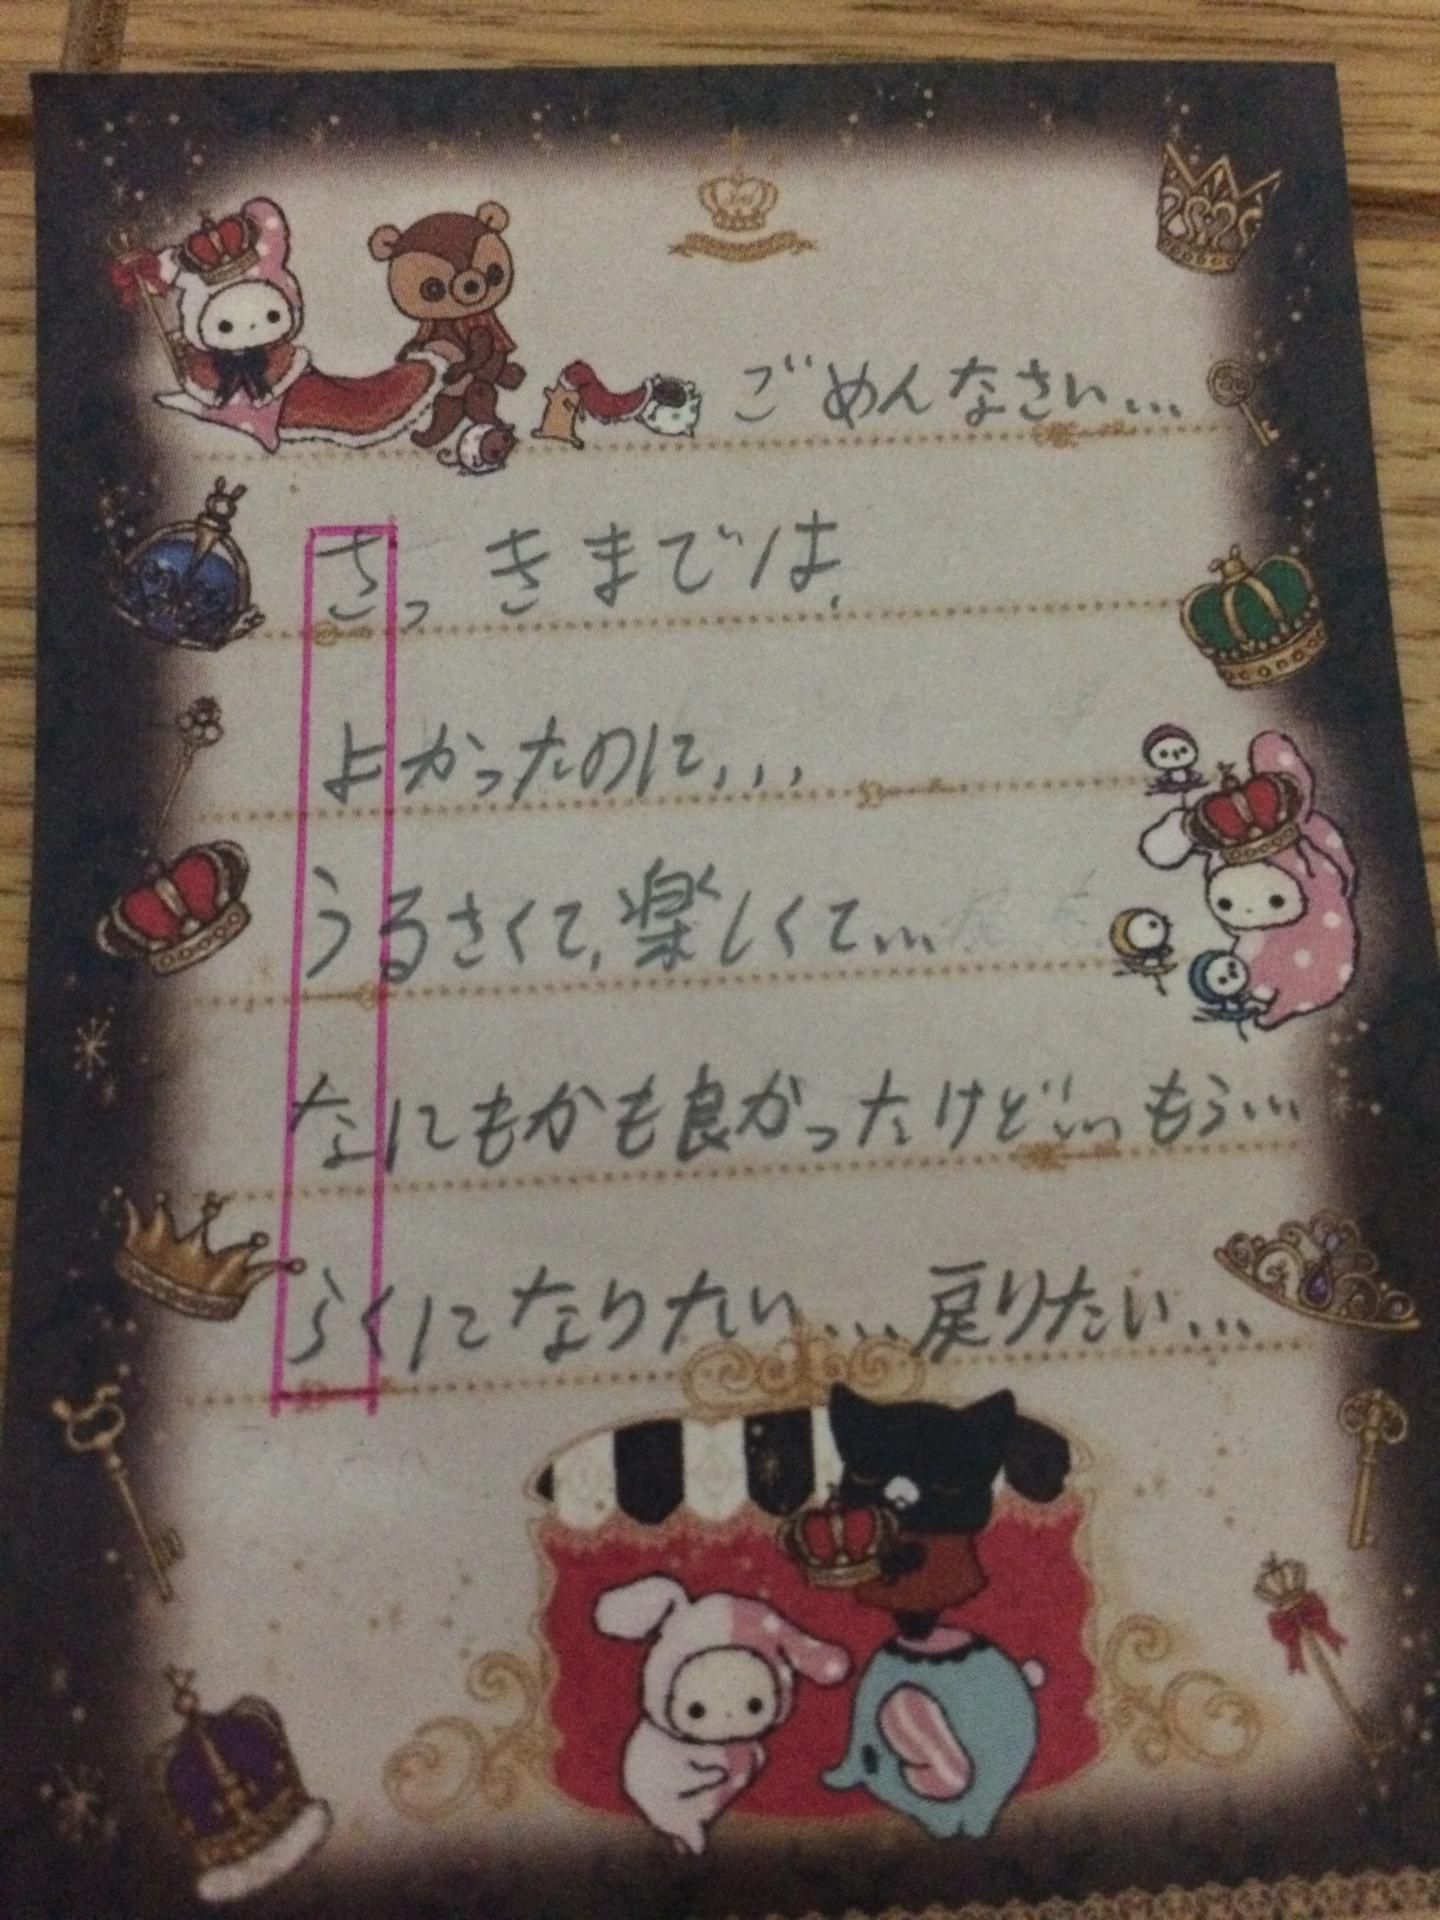 ごめんなさい...
さっきまでは、
よかったのに...
うるさくて、楽しくて...
なにもかも良かったけど... もう...
らくになりたい... 戻りたい...